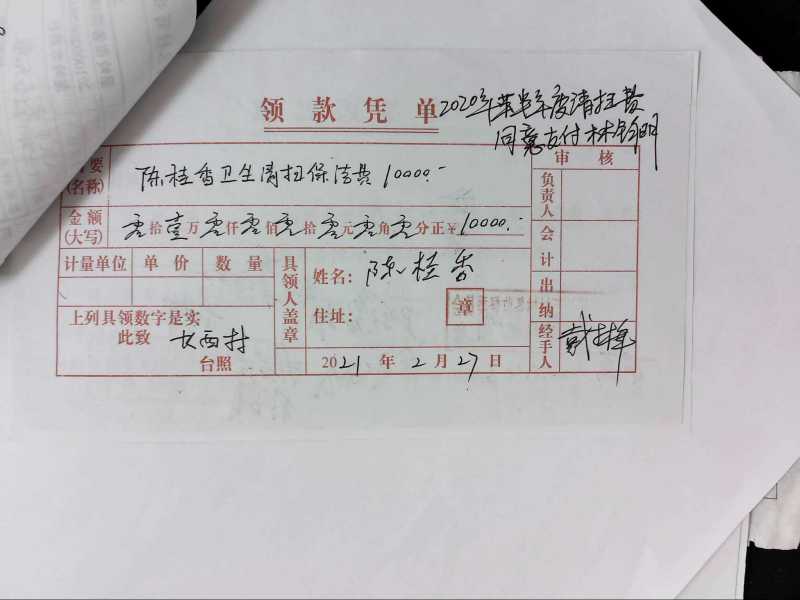 领款凭单
2020年 年度清扫费
同意支付 林
要
(名称)
陈桂香卫生清扫保洁费 10000.-
审核
金额
(大写)
零拾壹万零仟零佰零拾零元零角零分正¥10000.-
负责人
会计
计量单位 单价 数量
具领人盖章
姓名: 陈桂香
住址:
章
出纳
上列具领数字是实
此致 大西村
台照
2021年2月27日
经手人
戴